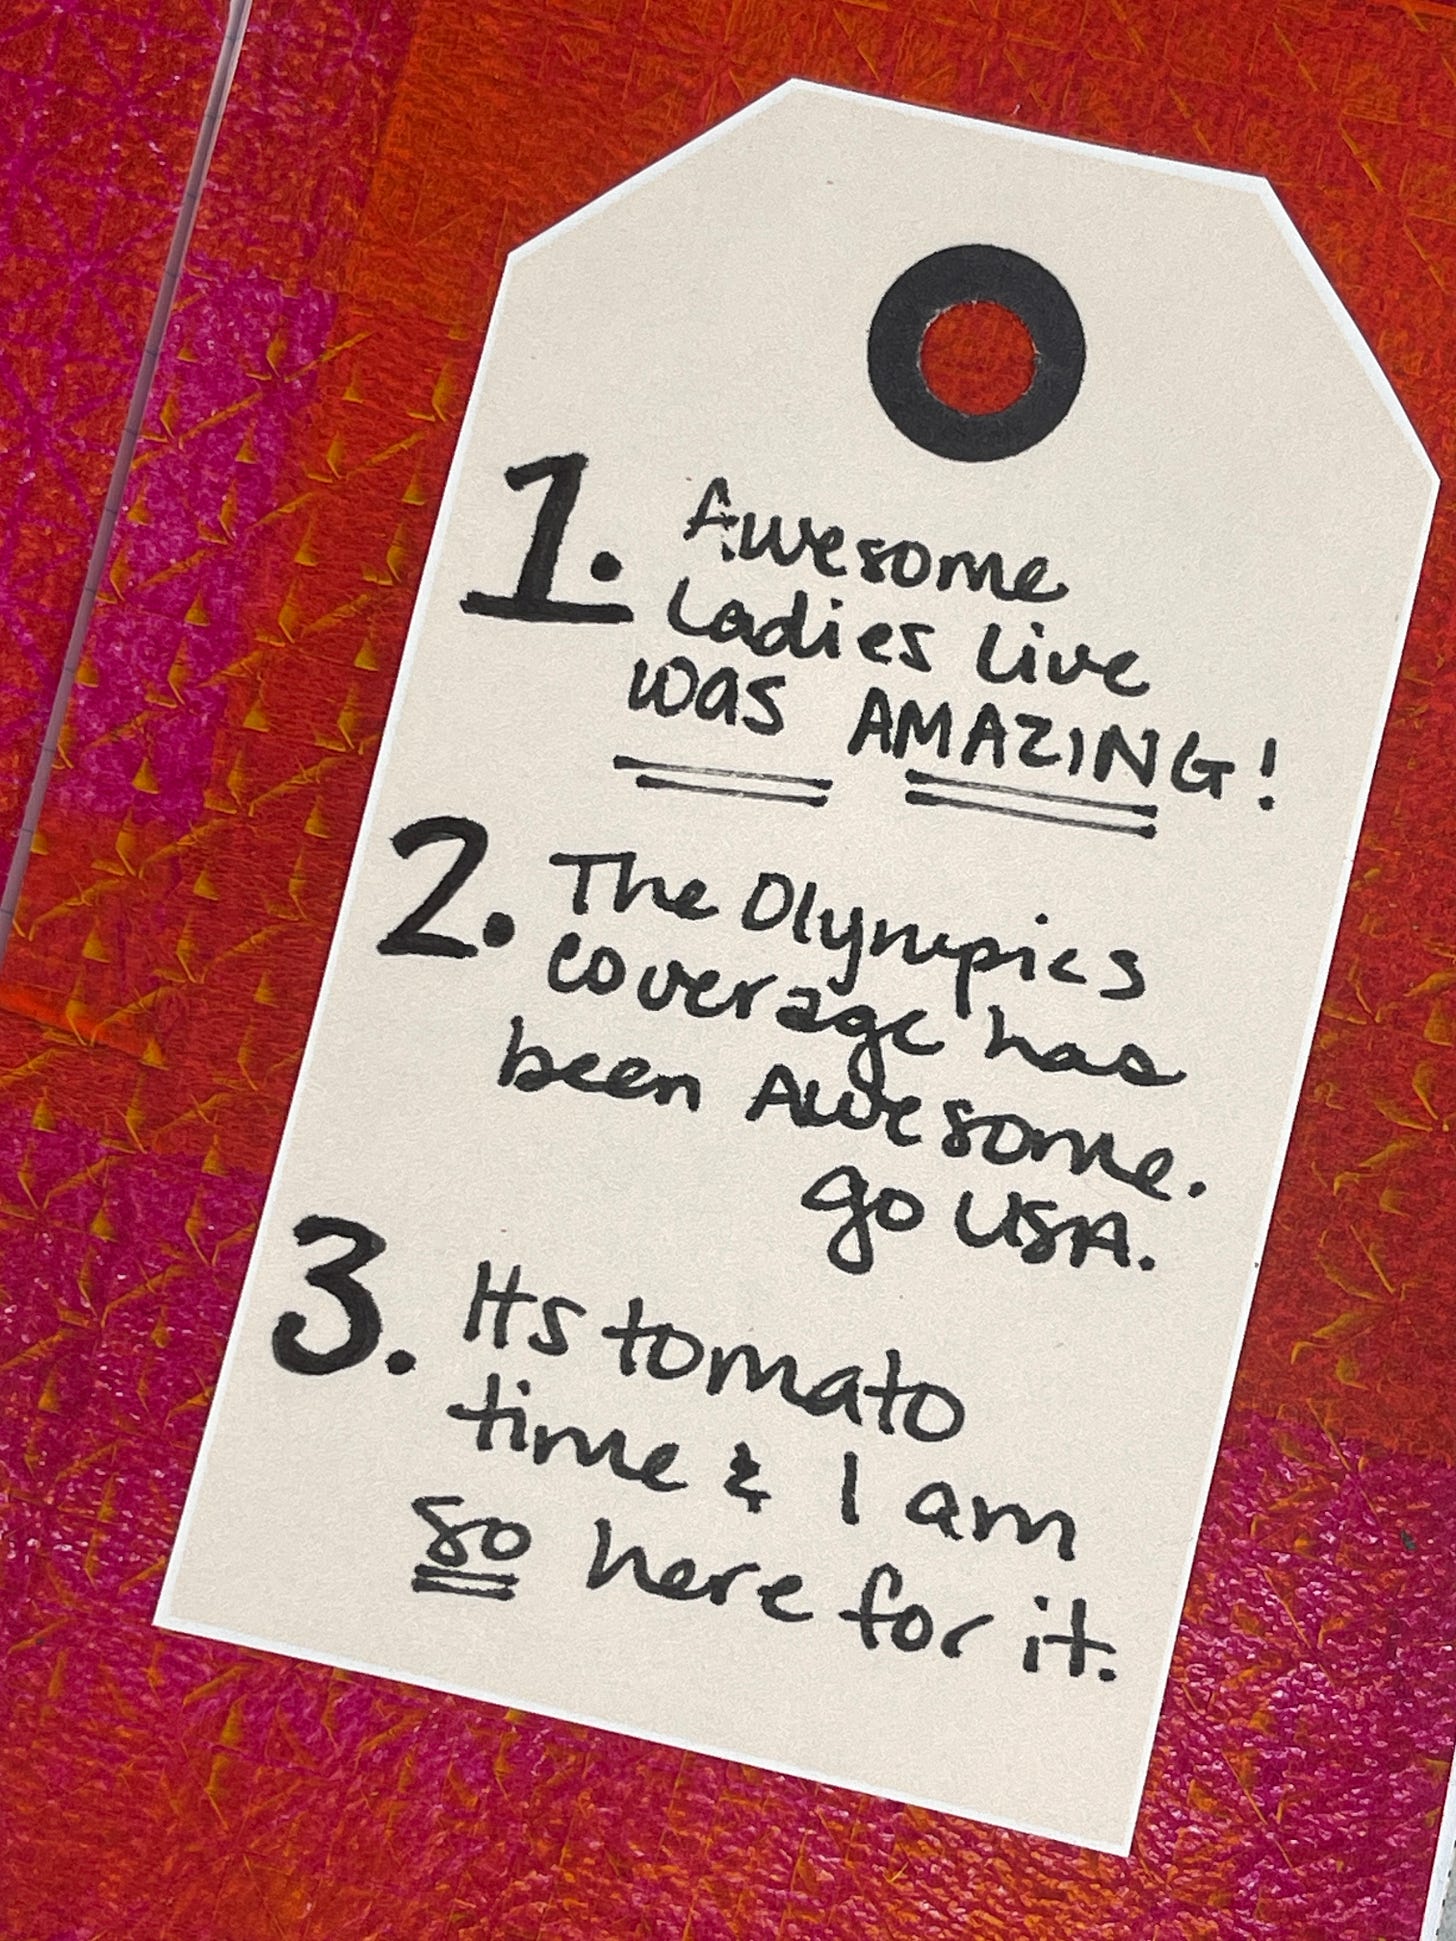 1. Awesome
Ladies Live
was AMAZING!
2. The Olympics
coverage has
been Awesome.
go USA.
3. Its tomato
time & I am
so here for it.